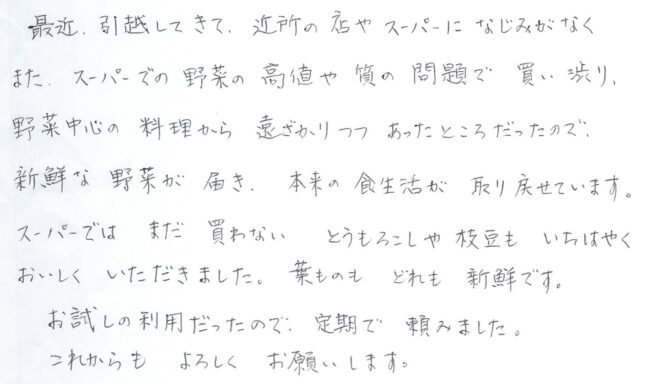 最近、引越してきて、近所の店やスーパーになじみがなく
また、スーパーでの野菜の高値や質の問題で買い渋り、
野菜中心の料理から遠ざかりつつあったところだったので、
新鮮な野菜が届き、本来の食生活が取り戻せています。
スーパーではまだ買わないとうもろこしや枝豆もいちはやく
おいしくいただきました。葉ものもどれも新鮮です。
お試しの利用だったので、定期で頼みました。
これからもよろしくお願いします。